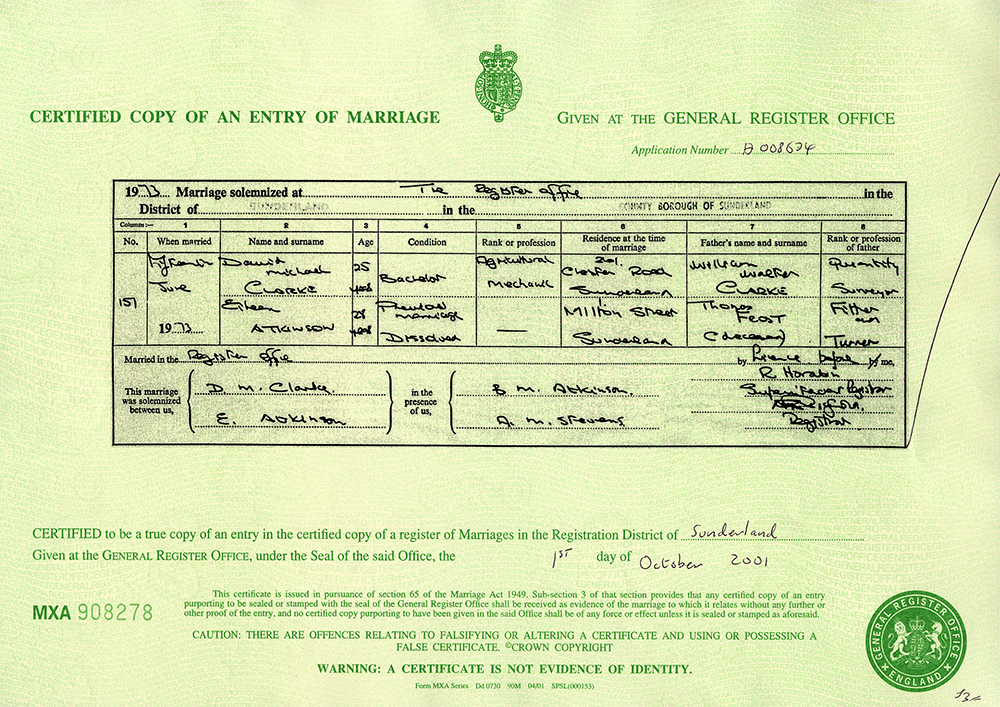 CERTIFIED COPY OF AN ENTRY OF MARRIAGE
GIVEN AT THE GENERAL REGISTER OFFICE
Application Number
1973 Marriage solemnized at The Register office in the
District of SUNDERLAND in the COUNTY BOROUGH OF SUNDERLAND
Columns:— 1 2 3 4 5 6 7 8
No. When married Name and surname Age Condition Rank or profession Residence at the time of marriage Father's name and surname Rank or profession of father
157
June
1973
David Michael
CLARKE
25 years
Bachelor
Agricultural
Mechanic
201,
Chester Road
Sunderland
William Walter
CLARKE
Quantity
Surveyor
Eileen
ATKINSON
28 years
Previous marriage
Dissolved
—
Milton Street
Sunderland
Thomas
FEOST
(deceased)
Fitter and
Turner
Married in the Register office by Licence before by me,
This marriage was solemnized between us,
D. M. Clarke.
E. Atkinson
in the presence of us,
B. M. Atkinson.
A. M. Stevens
R. Horabin
Superintendent Registrar
Registrar
CERTIFIED to be a true copy of an entry in the certified copy of a register of Marriages in the Registration District of Sunderland
Given at the GENERAL REGISTER OFFICE, under the Seal of the said Office, the 1st day of October 2001
MXA 908278
This certificate is issued in pursuance of section 65 of the Marriage Act 1949. Sub-section 3 of that section provides that any certified copy of an entry
purporting to be sealed or stamped with the seal of the General Register Office shall be received as evidence of the marriage to which it relates without any further or
other proof of the entry, and no certified copy purporting to have been given in the said Office shall be of any force or effect unless it is sealed or stamped as aforesaid.
CAUTION: THERE ARE OFFENCES RELATING TO FALSIFYING OR ALTERING A CERTIFICATE AND USING OR POSSESSING A
FALSE CERTIFICATE. ©CROWN COPYRIGHT
WARNING: A CERTIFICATE IS NOT EVIDENCE OF IDENTITY.
Form MXA Series Dd 0730 90M 04/01 SPSL(000153)
GENERAL REGISTER OFFICE
ENGLAND